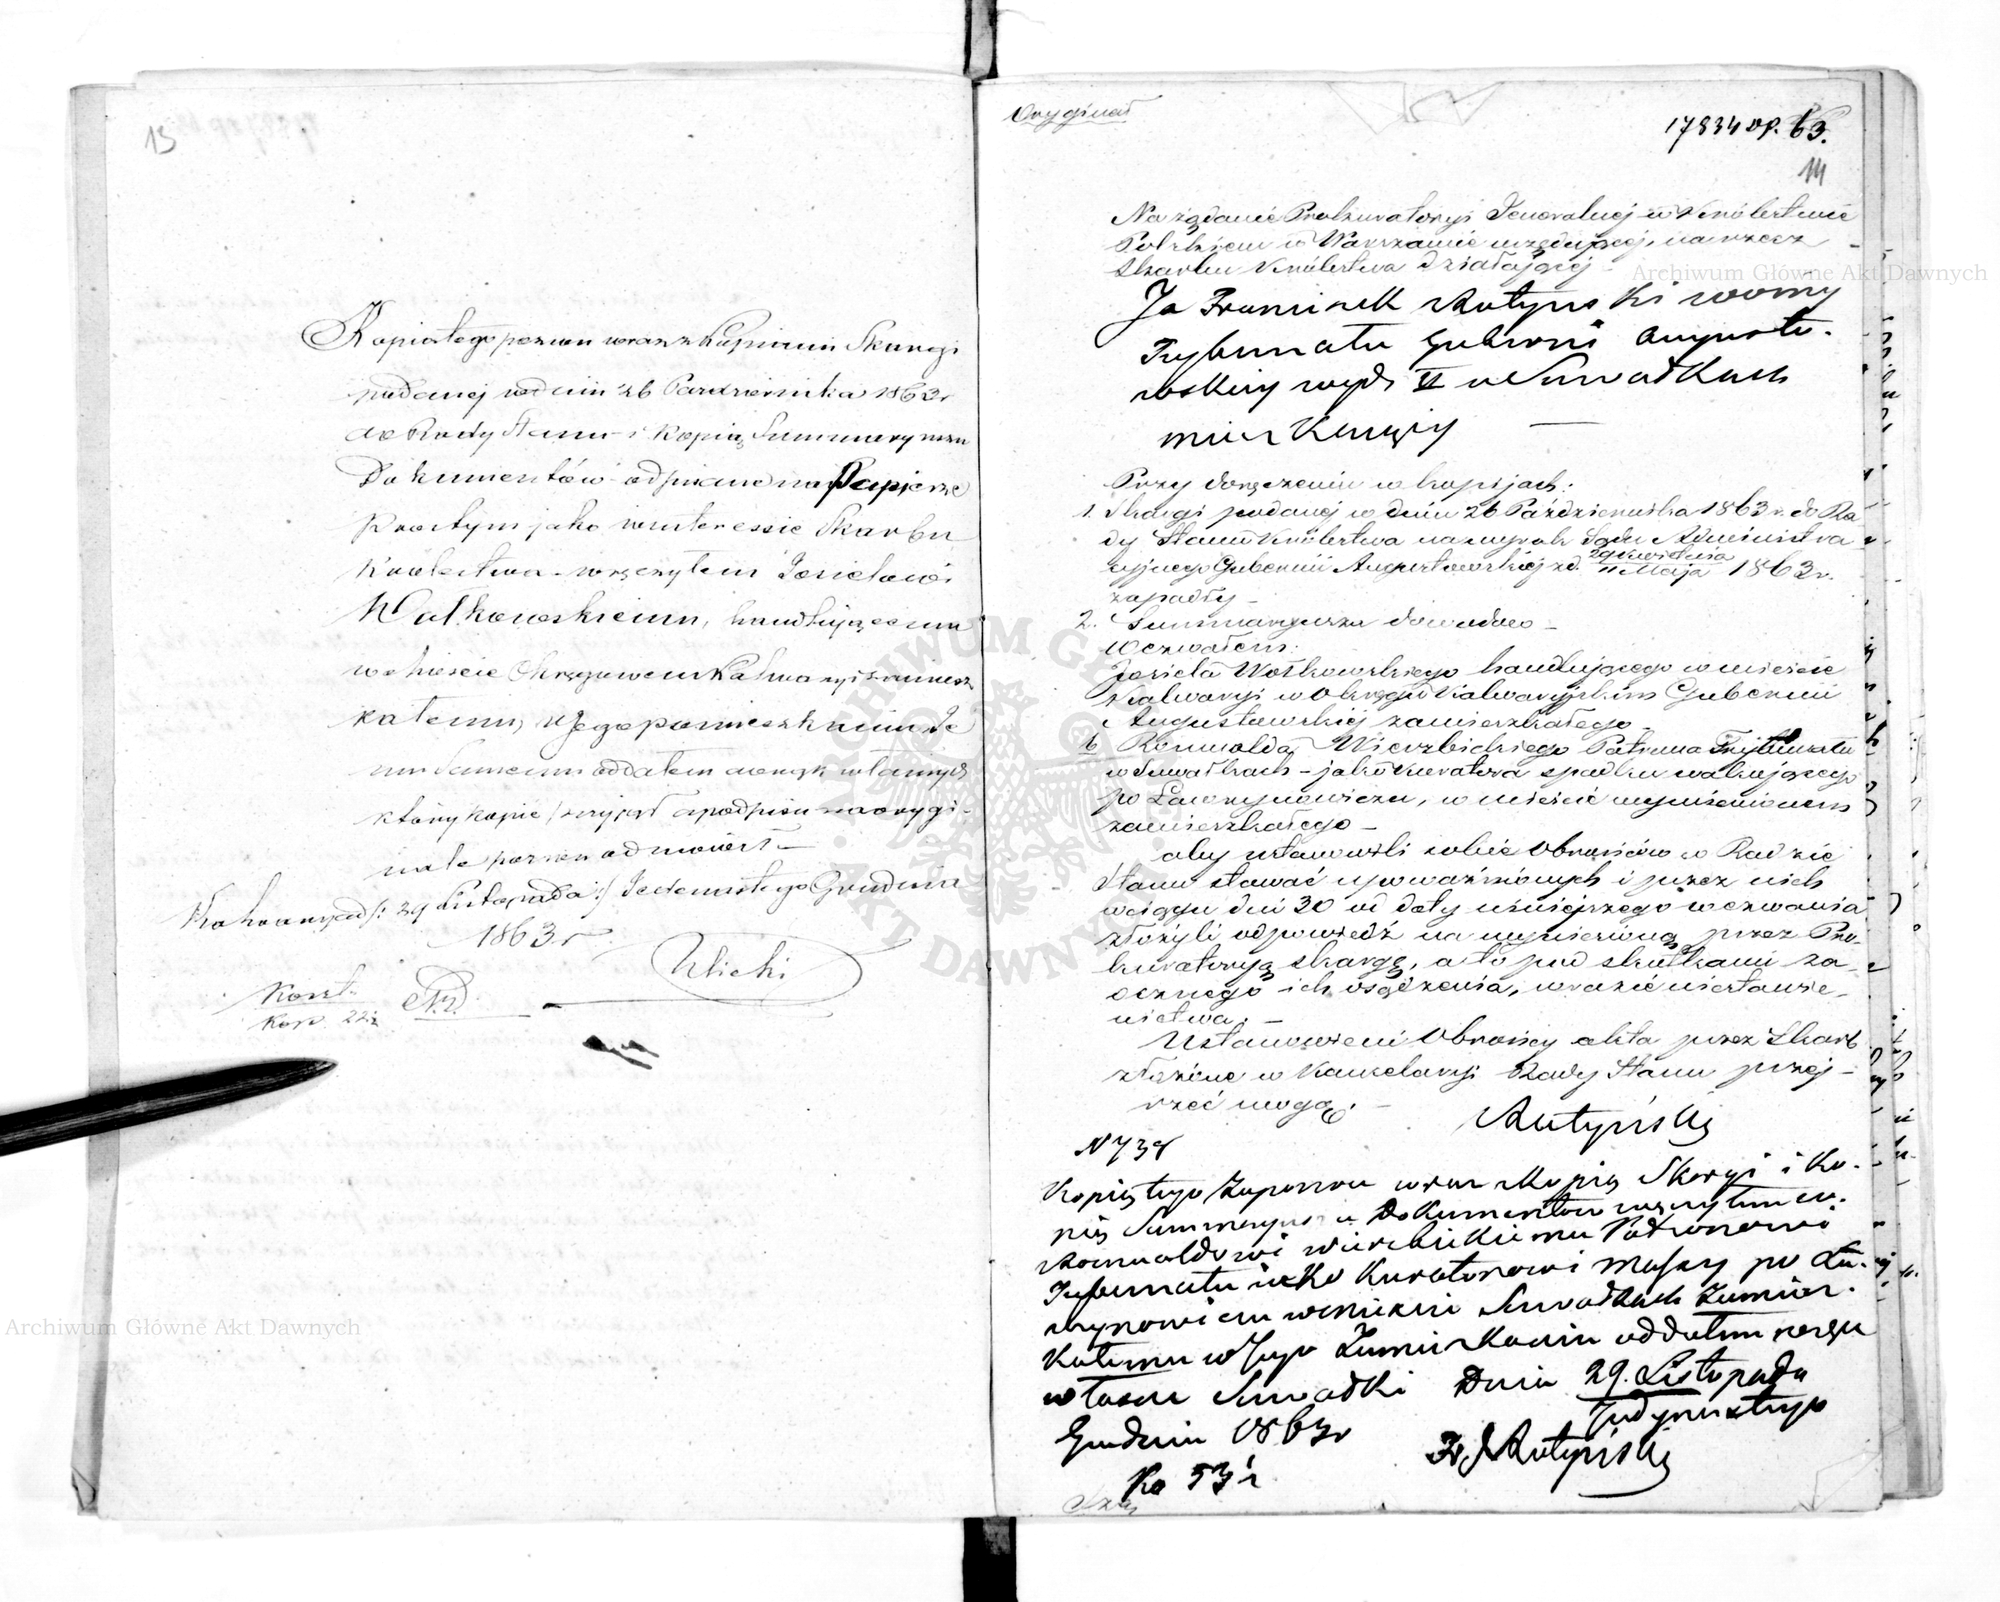 13
Kopią tego pozwu wraz z kopiami Skargi
podanej w dniu 26 Października 1863 r
do Rady Stanu i kopią Summaryusza
Dokumentów odpisane na Papierze
Prostym jako w interessie Skarbu
Królestwa - wręczyłem Josielowi
Wołkowoskiemu, handlującemu
w Mieście Okręgowem Kalwaryi zamiesz
kałemu, w Jego pomieszkaniu Je
mu Samemu oddałem do rąk własnych
który kopie przyjął a podpisu na orygi-
nale pozwu odmówił -
Kalwarya d /: 29 Listopada :/ Jedenastego Grudnia
1863 r
Ulicki
Koszt
Kop. 22½
Oryginał
17834 op. 63.
14
Na żądanie Prokuratoryi Jeneralnej w Królestwie
Polskiem w Warszawie urzędującej, na rzecz
Skarbu Królestwa działającej -
Ja Franciszek Rutyński woźny
Trybunału Guberni Augusto-
wskiey wydz II w Suwałkach
mieszkaiący
Przy doręczeniu w kopijach:
1. Skargi podanej w dniu 26 Października 1863 r. do Ra
dy Stanu Królestwa na wyrok Sądu Administra
cyjnego Gubernii Augustowskiej z d. 29 Kwietnia / 11 Maja 1863 r.
zapadły -
2. Summaryusza dowodów -
Wezwałem:
Josiela Wołkowskiego handlującego w mieście
Kalwaryi w Okręgu Kalwaryjskim Gubernii
Augustowskiej zamieszkałego -
b Romualda Wierzbickiego Patrona Trybunału
w Suwałkach - jako Kuratora spadku wakującego
po Ławrynowiczu, w mieście wymienionem
zamieszkałego -
aby ustanowili sobie Obrońców w Radzie
Stanu stawać upoważnionych i przez nich
w ciągu dni 30 od daty niniejszego wezwania
złożyli odpowiedź na wymierzoną przez Pro-
kuratoryą skargę, a to pod skutkami za-
ocznego ich osądzenia, w razie niestawie-
nictwa. -
Ustanowieni Obrońcy akta przez Skarb
złożone w Kancelaryi Rady Stanu przej-
rzeć mogą. -
Rutyński
N 738
Kopią tego Zapozwu wraz z Kopią Skargi i Ko-
pią Summaryusza Dokumentów wręczyłem
Romualdowi Wierzbickiemu Patronowi
Trybunału iako Kuratorowi massy po Ła-
wrynowiczu w mieście Suwałkach Zamiesz-
kałemu w Jego Zamieszkaniu oddałem do rąk
własne Suwałki Dnia 29. Listopada
Jedynastego
Grudnia 1863 r
Fr Rutyński
Ko 53½
Archiwum Główne Akt Dawnych
Archiwum Główne Akt Dawnych
ARCHIWUM GŁÓWNE AKT DAWNYCH